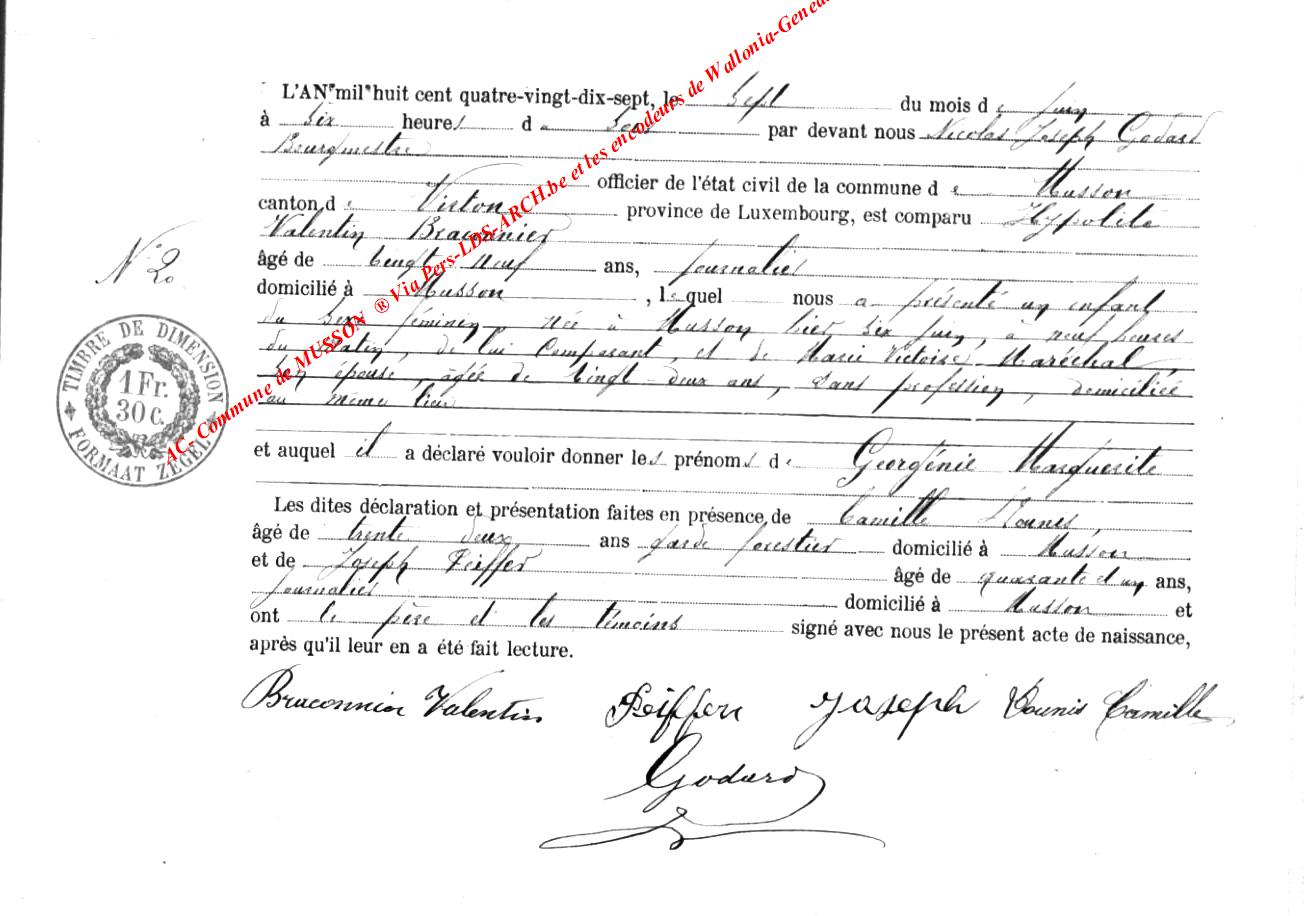 L'AN mil huit cent quatre-vingt-dix-sept, le sept du mois de juin
à six heures du soir par devant nous Nicolas Joseph Godard
Bourgmestre
officier de l'état civil de la commune de Musson
canton de Virton province de Luxembourg, est comparu Hypolite
Valentin Braconnier
âgé de vingt neuf ans, journalier
domicilié à Musson, lequel nous a présenté un enfant
du sexe féminin, née à Musson hier six juin, à neuf heures
du matin, de lui comparant, et de Marie Victoire Maréchal,
son épouse, âgée de vingt-deux ans, sans profession, domiciliée
au même lieu
et auquel il a déclaré vouloir donner les prénoms de Georgénie Marguerite
Les dites déclaration et présentation faites en présence de Camille
âgé de trente deux ans garde forestier domicilié à Musson
et de Joseph Peiffer âgé de quarante et un ans,
journalier domicilié à Musson et
ont le père et les témoins signé avec nous le présent acte de naissance,
après qu'il leur en a été fait lecture.
Braconnier Valentin Peiffer Joseph Camille
Godard
N° 20
TIMBRE DE DIMENSION
1 Fr.
30 C.
FORMAAT ZEGEL
AC- Commune de MUSSON ® Via Pers-LDS-ARCH.be et les encodeurs de Wallonia-Genea